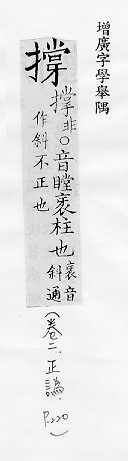 增廣字學舉隅
撐
撑非○音瞠衺柱也衺音
斜通
作斜不正也
(卷二.正譌.P.220)